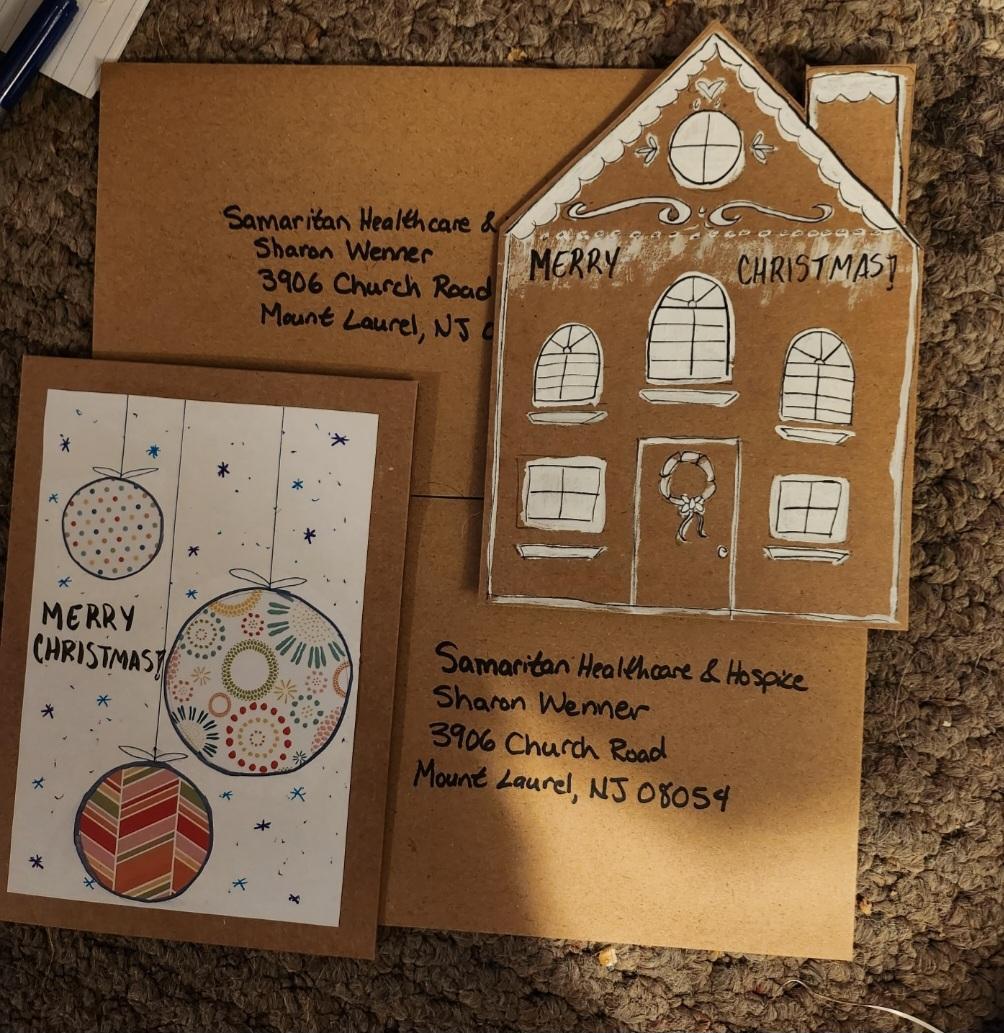 Samaritan Healthcare &
Sharon Wenner
3906 Church Road
Mount Laurel, NJ 0
MERRY CHRISTMAS!
MERRY
CHRISTMAS!
Samaritan Healthcare & Hospice
Sharon Wenner
3906 Church Road
Mount Laurel, NJ 08054